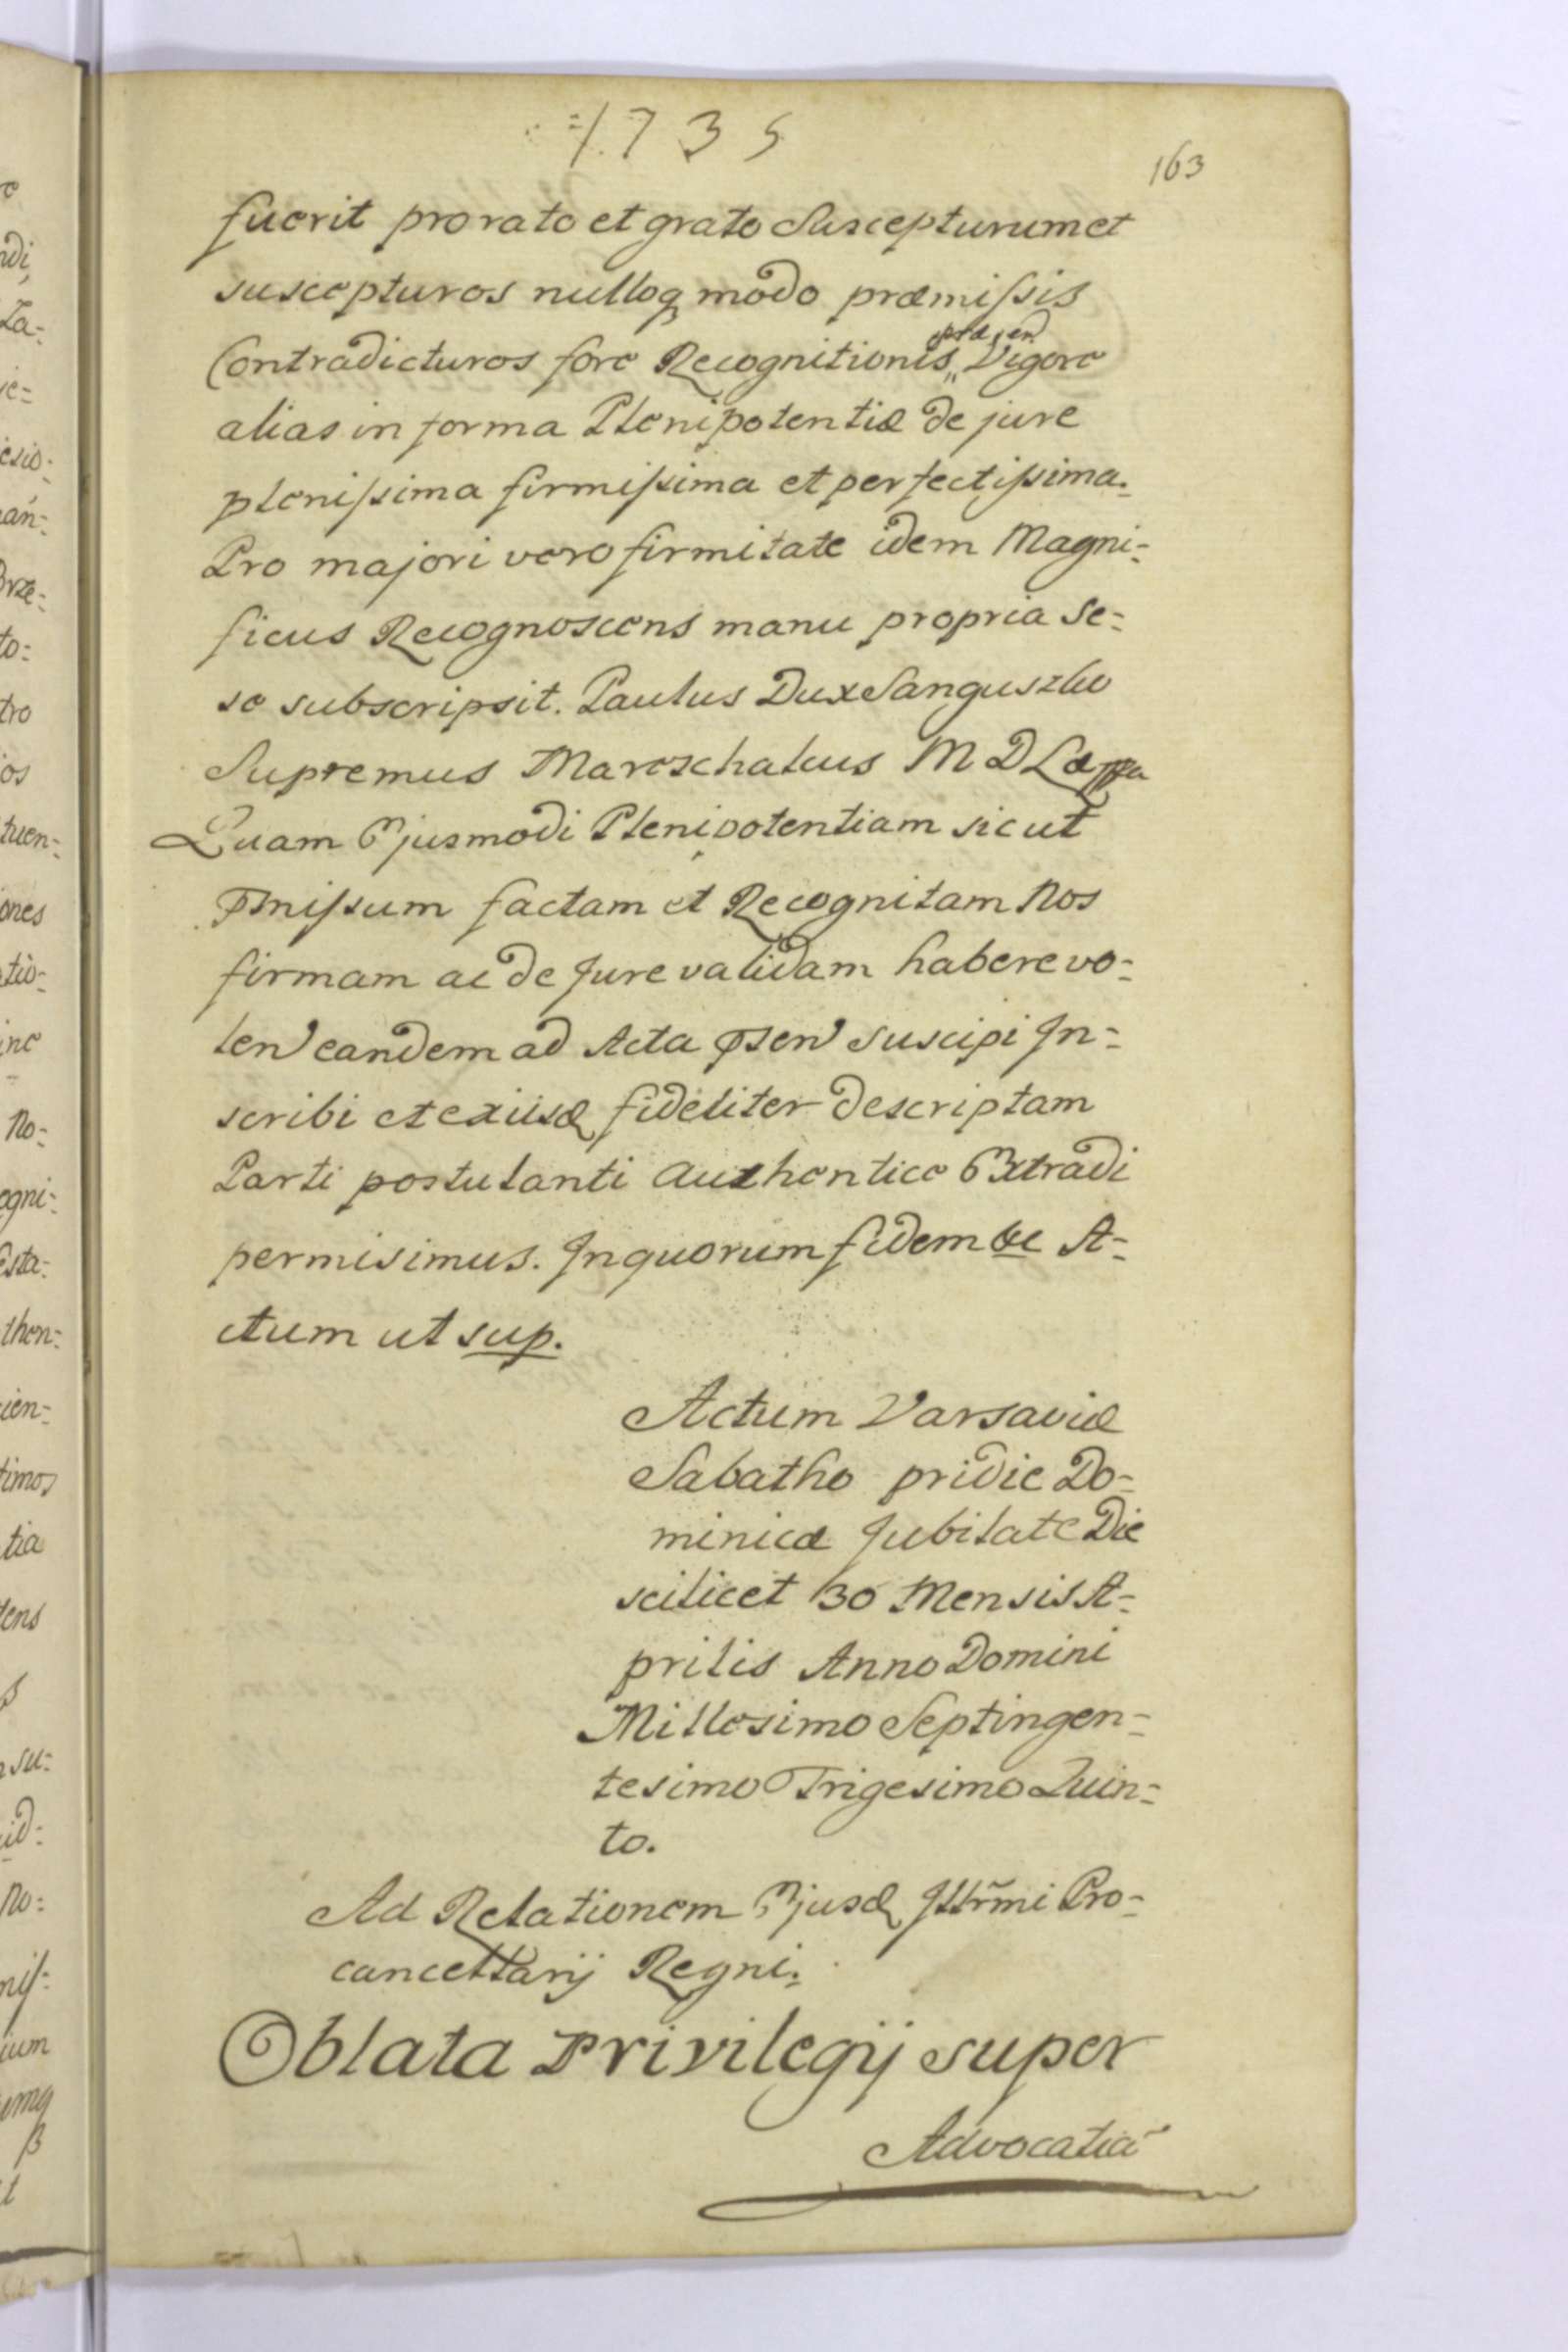 1735
163
fuerit pro rato et grato Suscepturum et
suscepturos nulloq modo præmissis
Contradicturos fore Recognitionis præsen Vigore
alias in forma Plenipotentiæ de jure
plenissima firmissima et perfectissima.
Pro majori vero firmitate idem Magni-
ficus Recognoscens manu propria Se-
se subscripsit. Paulus Dux Sanguszko
Supremus Mareschalcus M D L
Quam Ejusmodi Plenipotentiam sicut
Pmissum factam et Recognitam Nos
firmam ac de Jure validam habere vo-
len eandem ad Acta Psen suscipi In-
scribi et exiisd fideliter descriptam
Parti postulanti authentice Extradi
permisimus. In quorum fidem &c A-
ctum ut sup.
Actum Varsaviæ
Sabatho pridie Do-
minicæ Jubilate Die
scilicet 30 Mensis A-
prilis Anno Domini
Millesimo Septingen-
tesimo Trigesimo Quin-
to.
Ad Relationem Ejusd Illrmi Pro-
cancellarij Regni.
Oblata Privilegij super
Advocatia